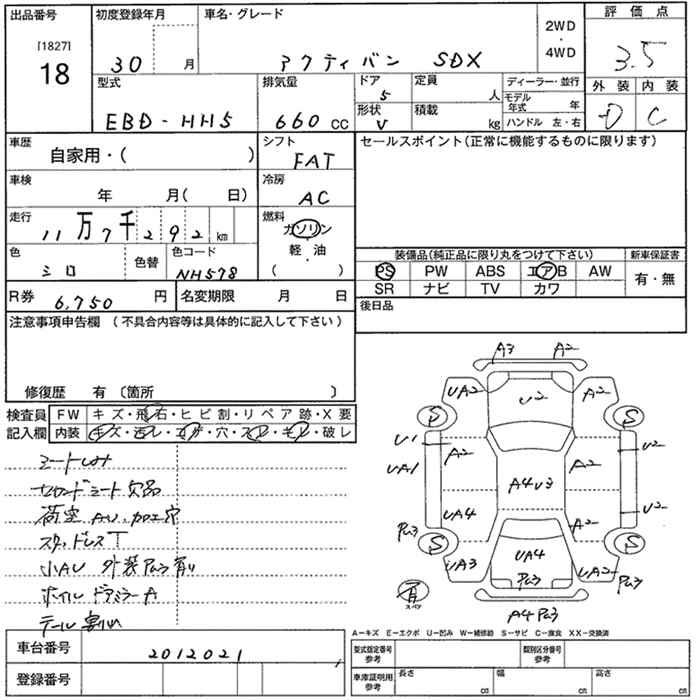 出品番号 初度登録年月 車名・グレード 2WD ・ 4WD 評価点
[1827] 18 30 月 アクティバン SDX 3.5
型式 排気量 ドア 定員 ディーラー・並行 外装 内装
EBD-HH5 660 cc 5 人 モデル年式 年 D C
形状 V 積載 kg ハンドル 左・右
車歴 自家用・( ) シフト FAT セールスポイント(正常に機能するものに限ります)
車検 年 月( 日) 冷房 AC
走行 11万7千292 km 燃料 ガソリン 軽・油 ・ ( )
色 シロ 色替 色コード NH578
装備品(純正品に限り丸をつけて下さい) 新車保証書
PS PW ABS エアB AW 有・無
SR ナビ TV カワ
R券 6,750 円 名変期限 月 日 後日品
注意事項申告欄 (不具合内容等は具体的に記入して下さい)
修復歴 有 〔箇所 〕
検査員 FW キズ・飛石・ヒビ割・リペア跡・X要
記入欄 内装 キズ・汚レ・コゲ・穴・スレ・キレ・破レ
A3 A2
UA2 U2 A2
S S
U1 A2 A2 U2
UA1 A4U3
UA4 A2 U2
Pu3 S S
UA3 UA4 UA2 Pu3
Pu3
有 スペア A4 Pu3
シートしみ
セカンドシート欠品
荷室 AU.加工穴
スタッドレスT
小AU 外装Pu3有り
ホイル ドアミラーA
テール割れ
A-キズ E-エクボ U-凹み W-補修跡 S-サビ C-腐食 XX-交換済
車台番号 2012021 型式指定番号 参考 類別区分番号 参考
登録番号 車庫証明用 参考 長さ cm 幅 cm 高さ cm